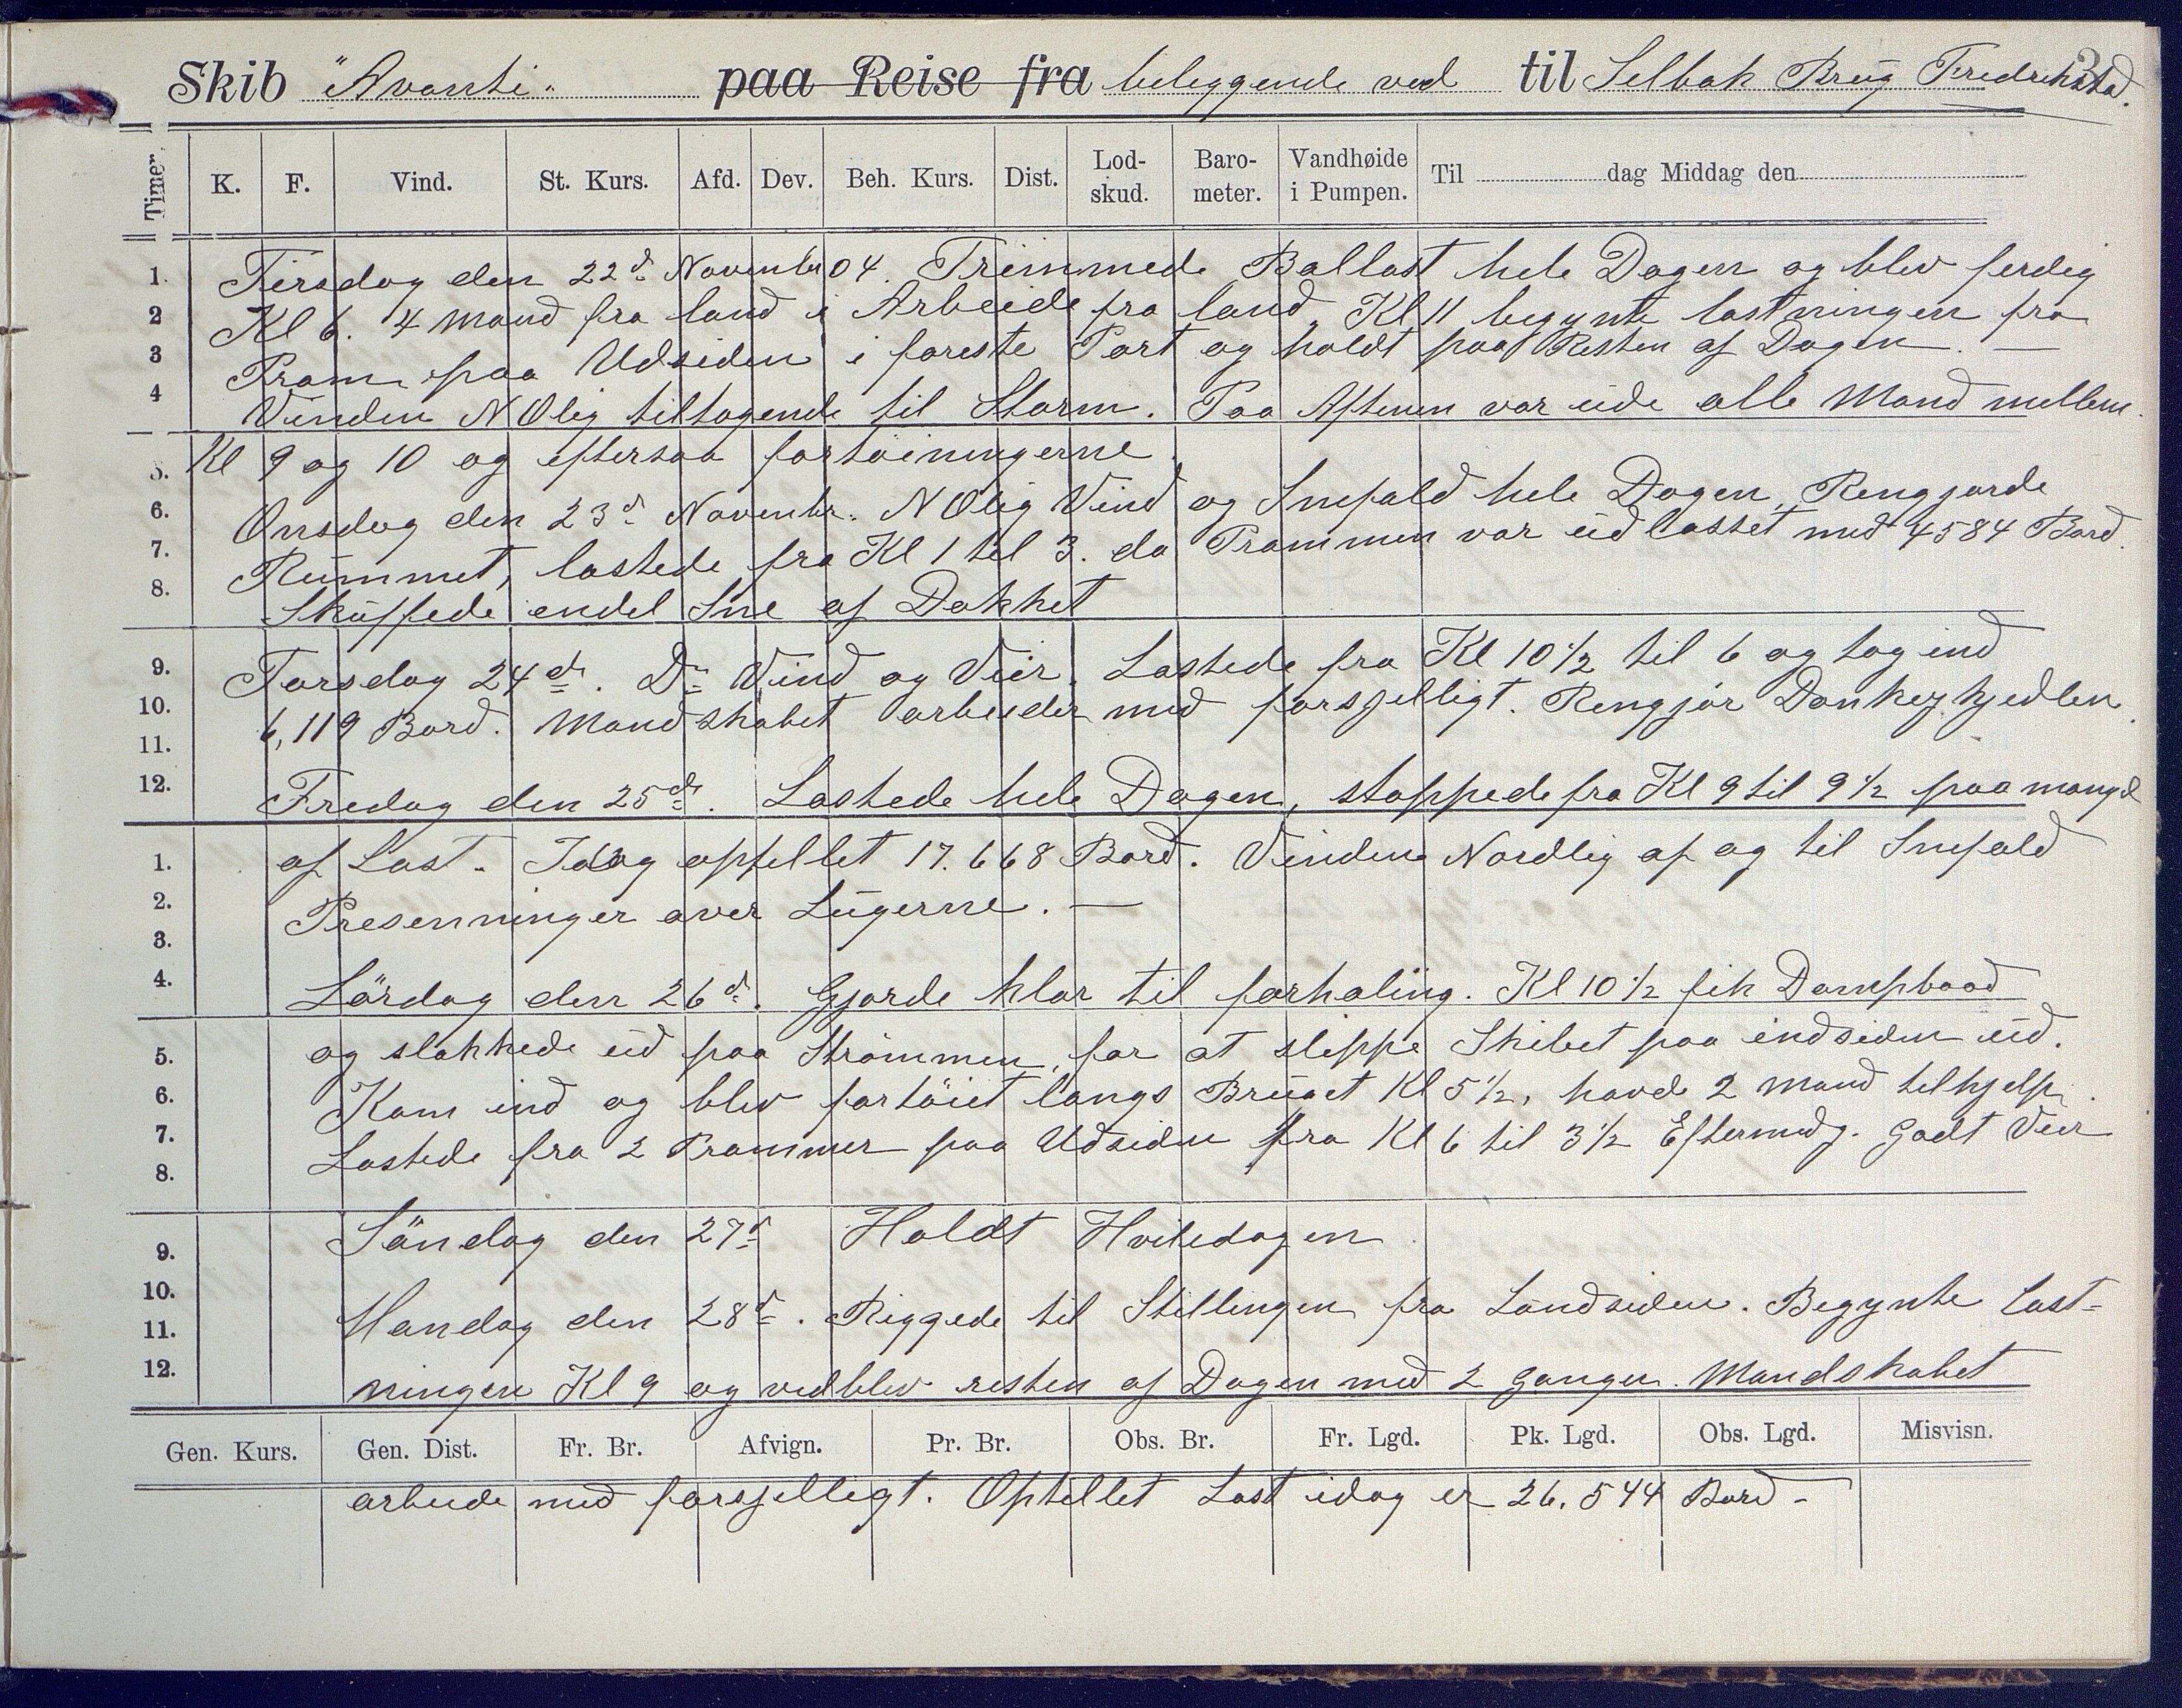 Skib "Avanti" paa Reise fra beleggende ved til Selbak Brug Fredrikstad.
Timer. K. F. Vind. St. Kurs. Afd. Dev. Beh. Kurs. Dist. Lod-skud. Baro-meter. Vandhøide i Pumpen. Til dag Middag den
1. Tirsdag den 22d. Novembr 04. Trimmede Ballast hele Dagen og blev ferdig
2 Kl 6. 4 Mand fra land i Arbeide fra land, Kl 11 begynte lastningen fra
3 Pram paa Udsiden i foreste Port og holdt paa Resten af Dagen. —
4 Vinden NOlig tiltagende til Storm. Paa Aftenen var ude alle Mand mellem
5. Kl 9 og 10 og eftersaa fortöiningerne.
6. Onsdag den 23d. Novembr. NOlig Vind og Snefald hele Dagen, Rengjorde
7. Rummet, lastede fra Kl 1 til 3. da Prammen var udlosset med 4584 Bord.
8. Skuffede endel Sne af Dækket
9. Torsdag 24de. Do Vind og Veir. Lastede fra Kl 10 1/2 til 6 og tog ind
10. 6,119 Bord. Mandskabet arbeider med forsjelligt. Rengjör Donkeykjedlen.
11.
12. Fredag den 25de. Lastede hele Dagen, stoppede fra Kl 9 til 9 1/2 paa mangel
1. af Last. Idag optellet 17.668 Bord. Vinden Nordlig af og til Snefald
2. Presenninger over Lugerne. —
3.
4. Lördag den 26d. Gjorde klar til forhaling. Kl 10 1/2 fik Dampbaad
5. og slakkede ud paa Strömmen, for at slippe Skibet paa indsiden ud.
6. Kom ind og blev fortöiet langs Bruget Kl 5 1/2, havde 2 Mand tilhjelp.
7. Lastede fra 2 Prammer paa Udsiden fra Kl 6 til 3 1/2 Eftermdg. Godt Veir
8.
9. Söndag den 27d Holdt Hviledagen.
10.
11. Mandag den 28d. Riggede til Stillingen fra Landsiden. Begynte last-
12. ningen Kl 9 og vedblev resten af Dagen med 2 Ganger. Mandskabet
Gen. Kurs. Gen. Dist. Fr. Br. Afvign. Pr. Br. Obs. Br. Fr. Lgd. Pk. Lgd. Obs. Lgd. Misvisn.
arbeide med forsjelligt. Optellet Last idag er 26.544 Bord -